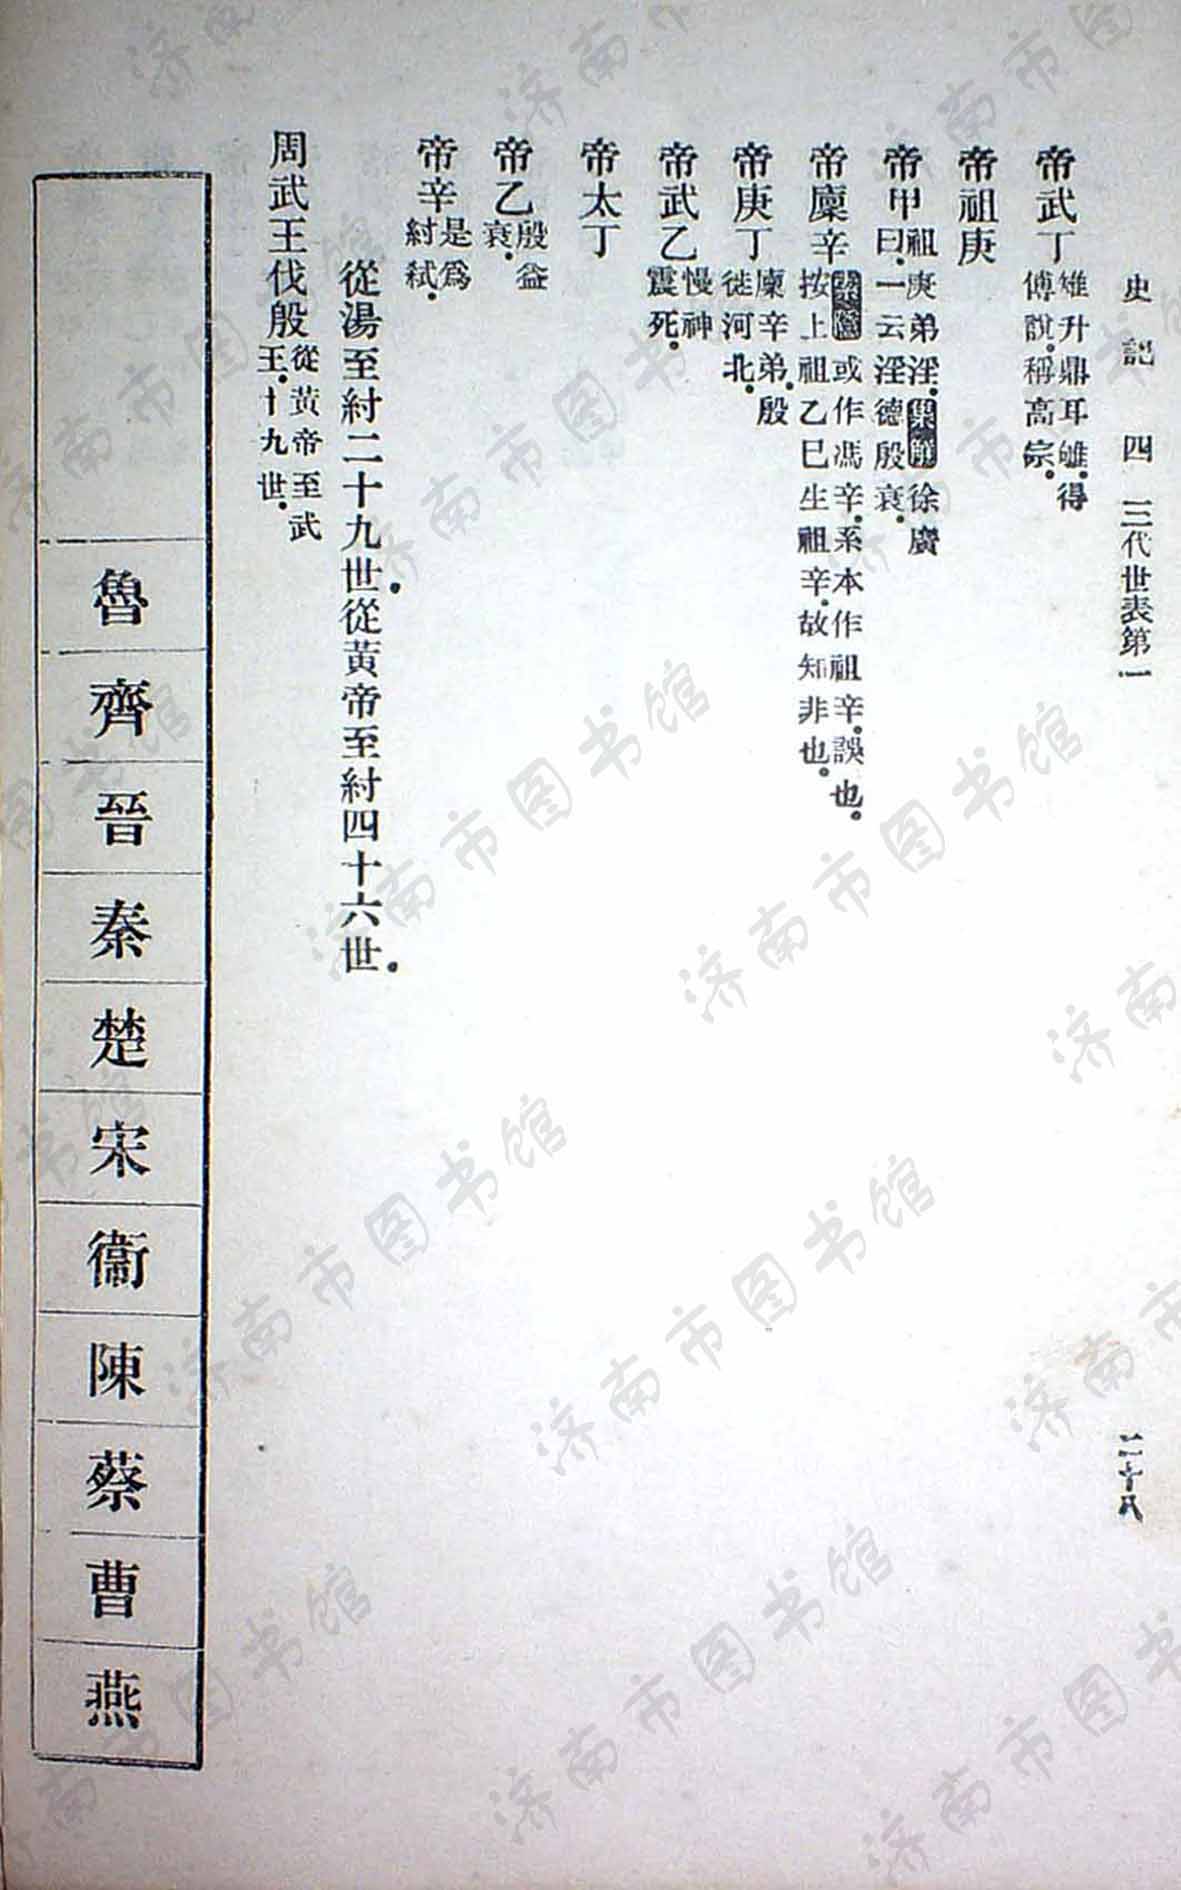 史記 四 三代世表第一 二十八
帝武丁 雉升鼎耳雊.得
傅說.稱高宗.
帝祖庚
帝甲 祖庚弟淫.集解徐廣
曰.一云淫德殷衰.
帝廩辛 索隱或作馮辛.系本作祖辛.誤也.
按上祖乙巳生祖辛.故知非也.
帝庚丁 廩辛弟.殷
徙河北.
帝武乙 慢神
震死.
帝太丁
帝乙 殷益
衰.
帝辛 是爲
紂弑.
從湯至紂二十九世.從黃帝至紂四十六世.
周武王伐殷 從黃帝至武
王.十九世.
魯
齊
晉
秦
楚
宋
衞
陳
蔡
曹
燕
济南市图书馆